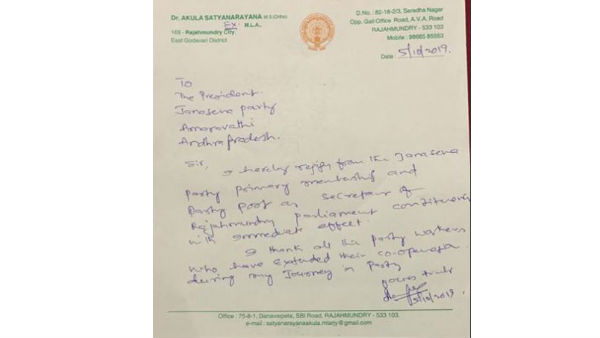 Dr. AKULA SATYANARAYANA M.S.(Ortho)
Ex. M.L.A.,
169 - Rajahmundry City,
East Godavari District
D.No.: 82-18-2/3, Saradha Nagar
Opp. Gail Office Road, A.V.A. Road
RAJAHMUNDRY - 533 103
Mobile : 98665 85553
Date : 5/10/2019.
To
The President
Janasena party
Amaravathi
Andhra pradesh.
Sir,
I hereby resign from the Janasena
party primary membership and
party post as secretary of
Rajahmundry parliament constituency
with immediate effect.
I thank all the party workers
who have extended their co-operation
during my Journey in party
yours truly
5/10/2019.
Office : 75-8-1, Danavaipeta, SBI Road, RAJAHMUNDRY - 533 103.
e-mail : satyanarayanaakula.mlarjy@gmail.com